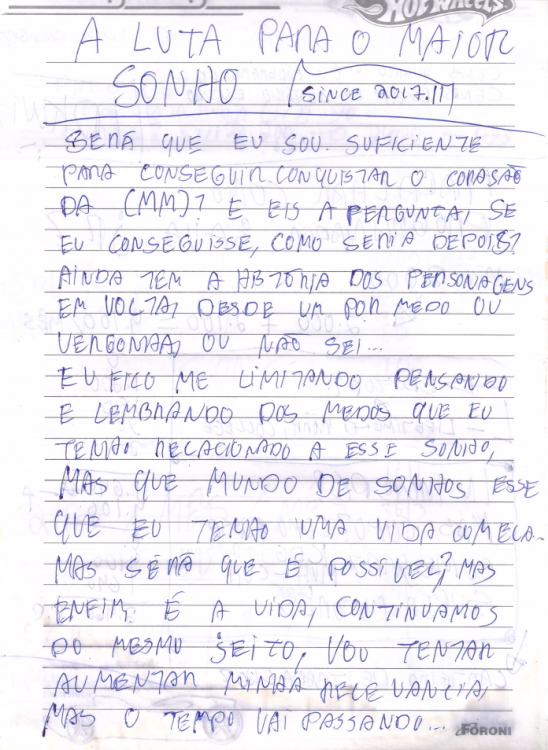 HOT WHEELS
A LUTA PARA O MAIOR
SONHO (SINCE 2017.11)
SERÁ QUE EU SOU SUFICIENTE
PARA CONSEGUIR CONQUISTAR O CORASÃO
DA (MM)? E EIS A PERGUNTA, SE
EU CONSEGUISSE, COMO SERIA DEPOIS?
AINDA TEM A HISTÓRIA DOS PERSONAGENS
EM VOLTA, DESDE UM POR MEDO OU
VERGONHA, OU NÃO SEI...
EU FICO ME LIMITANDO PENSANDO
E LEMBRANDO DOS MEDOS QUE EU
TENHO RELACIONADO A ESSE SONHO,
MAS QUE MUNDO DE SONHOS ESSE
QUE EU TENHO UMA VIDA COMEÇA..
MAS SERÁ QUE É POSSÍVEL? MAS
ENFIM, É A VIDA, CONTINUAMOS
DO MESMO JEITO, VOU TENTAR
AUMENTAR MINHA RELEVANCIA,
MAS O TEMPO VAI PASSANDO...
FORONI